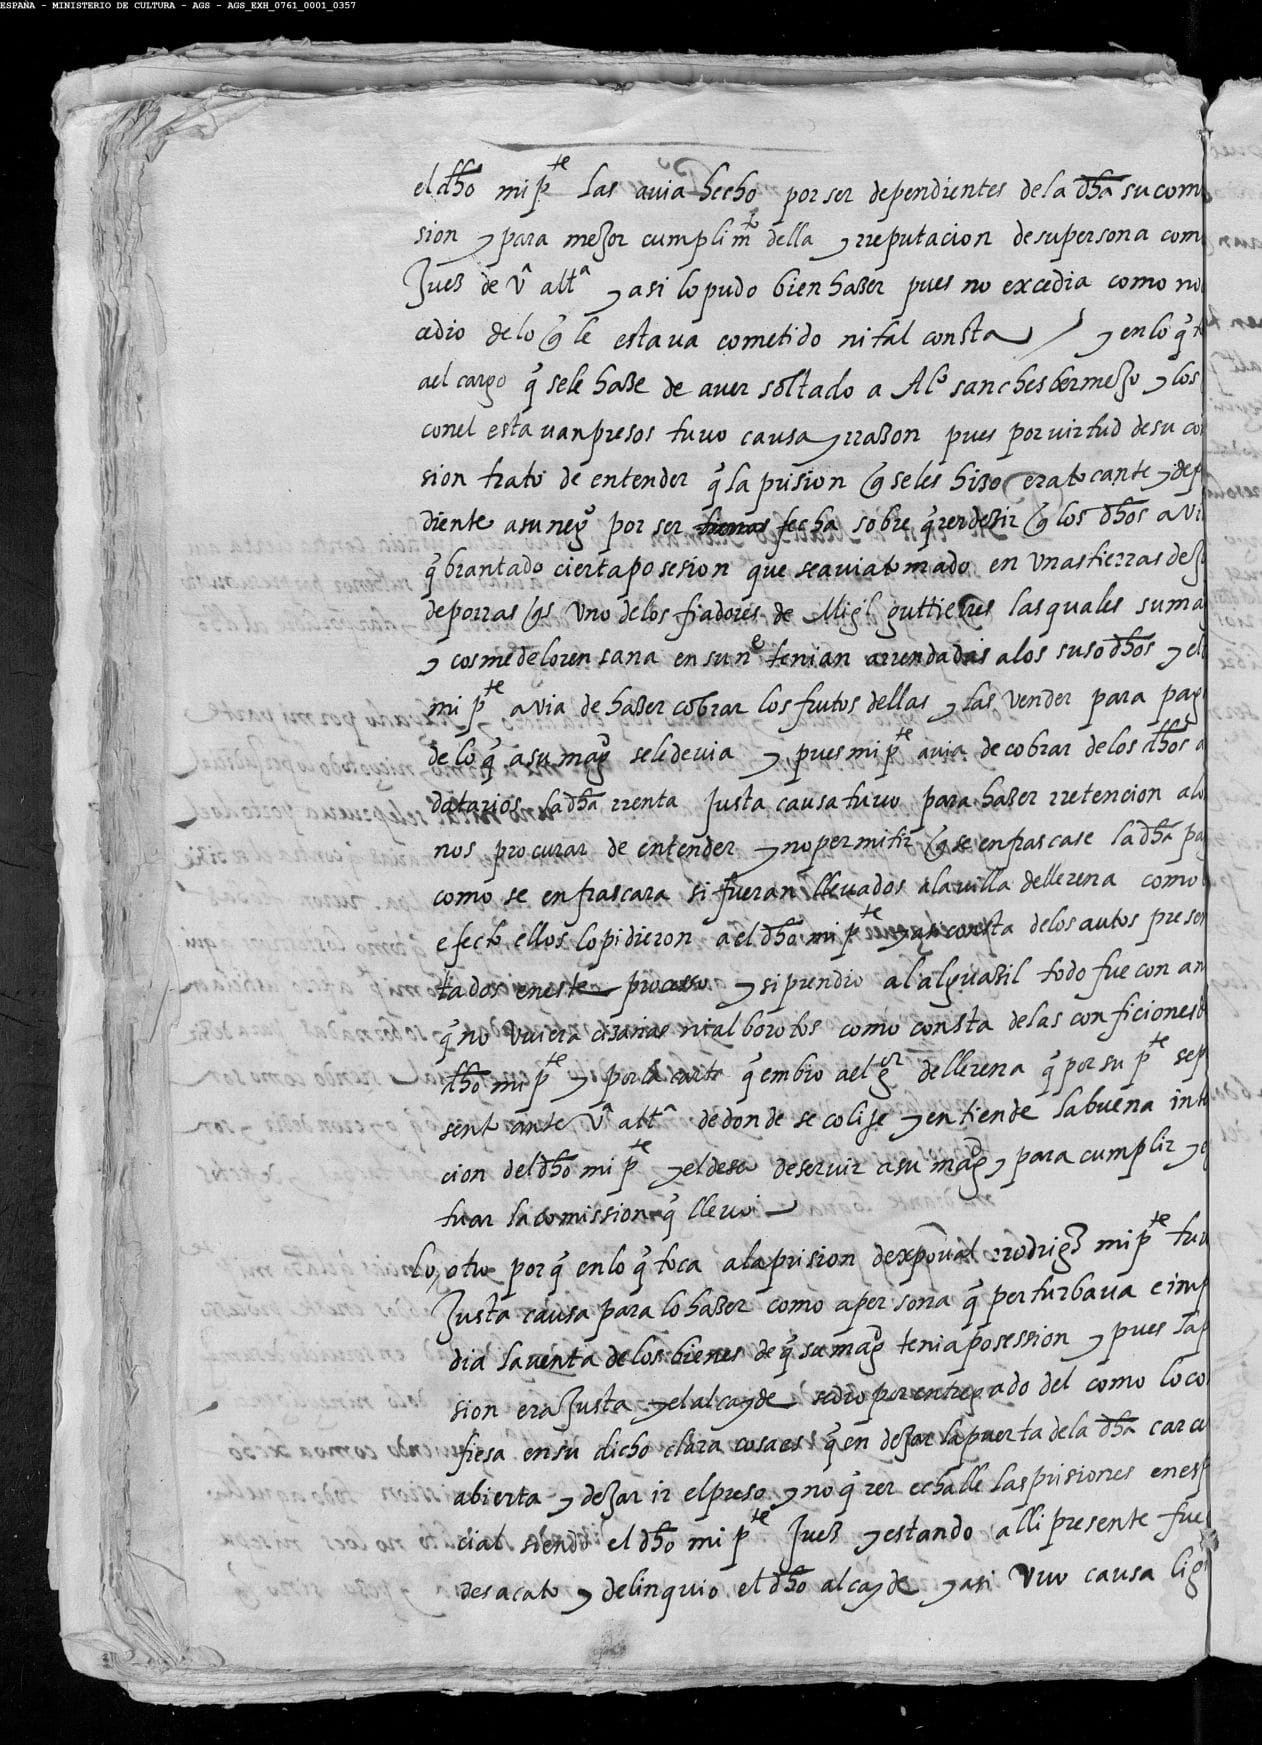 ESPAÑA - MINISTERIO DE CULTURA - AGS - AGS_EXH_0761_0001_0357
el dho mi pte las avia hecho por ser dependientes de la dha su com
sion y para mejor cumplimto della y rreputacion de su persona com
Juez de v alta y asi lo pudo bien hazer pues no excedia como no
cedio de lo q le estava cometido ni tal consta / y en lo q
a el cargo q se le haze de aver soltado a Alo sanches bermejo y los
con el estavan presos tuvo causa y rrazon pues por virtud de su co
sion trato de entender q la prision q se les hizo era tocante y dep
diente a su nego por ser fecha sobre qrer dezir q los dhos avi
qbrantado cierta posesion que se avia tomado en unas tierras de
de porras qs uno de los fiadores de Migl guttierres las quales su mag
y cosme de lorensana en su ne tenian arrendadas a los suso dhos y el
mi pte avia de hazer cobrar los frutos dellas y las vender para pag
de lo q a su magd se le devia y pues mi pte avia de cobrar de los dhos a
datarios la dha rrenta justa causa tuvo para hazer rretencion a lo
nos procurar de entender y no permitir q se enfrascase la dha pa
como se enfrascara si fueran llevados a la villa de llerena como
efecto ellos lo pidieron a el dho mi pte y asi consta de los autos presen
tados en este processo y si prendio al alguazil todo fue con an
q no uviera cisanias ni alborotos como consta de las conficiones d
dho mi pte y por la carta q embio a el gor de llerena q por su pte se p
sento ante v alta de donde se colije y entiende la buena inte
cion del dho mi pte y el deseo de servir a su magd y para cumplir y e
tuar la comission q llevo
lo otro por q en lo q toca a la prision de xpoval rrodrigz mi pte tuv
Justa causa para lo hazer como a persona q perturbava e imp
dia la venta de los bienes de q su magd tenia posession y pues la p
sion era justa y el alcayde se dio por entregado del como lo co
fiesa en su dicho clara cosa es q en dejar la puerta de la dha carce
abierta y dejar ir el preso y no qrer echalle las prisiones en esp
cial siendo el dho mi pte Juez y estando alli presente fue
desacato y delinquio el dho alcayde y asi uvo causa lig